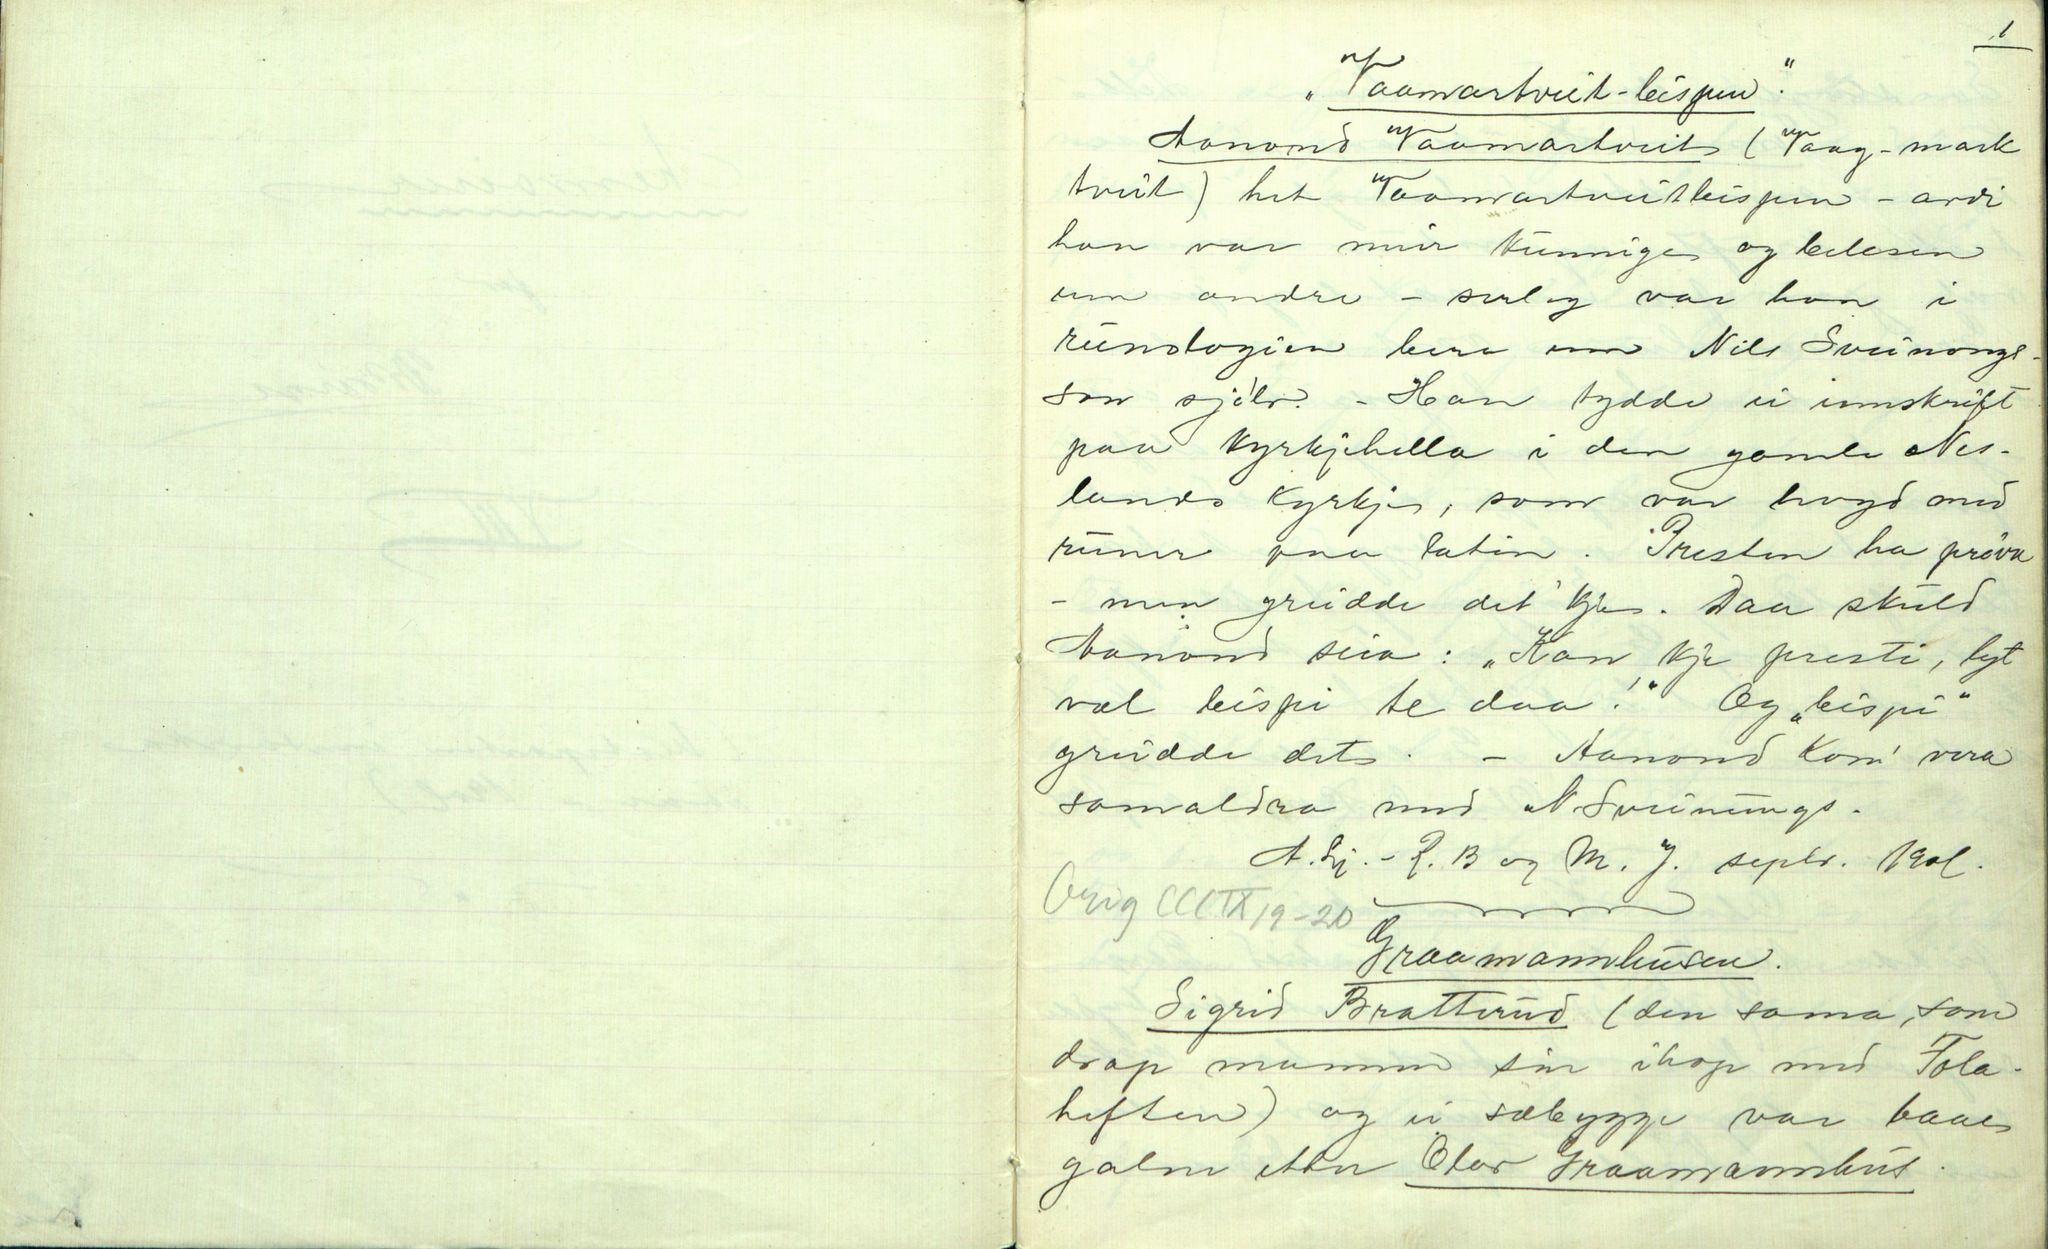 1
„Vaamartveit-bispen".
Aanond Vaamartveit (Vaag-mark
tveit) het Vaamartveitbispen - avdi
han var meir kunnige og belesen
enn andre - serleg var han i
runologien bere enn Nils Sveinongs-
son sjölv. - Han tydde ei innskrift
paa kyrkjehella i den gamle Nes-
lands kyrkje, som var hogd med
runer paa latin. Presten ha pröva
- men greidde det kje. Daa skuld
Aanond seia: „Kan kje presti, lyt
væl bispi te daa!" Og „bispi"
greidde det. - Aanond kom' vera
samaldra med N. Sveinungs.
A. Lj. - R. B og M. J. septr. 1901.
Orig CCCIX 19-20
Graamannhusen.
Sigrid Bratterud (den sama, som
drap mannen sin ihop med Fola-
heften) og ei sæbyggje var baae
galne etter Olav Graamannhus.